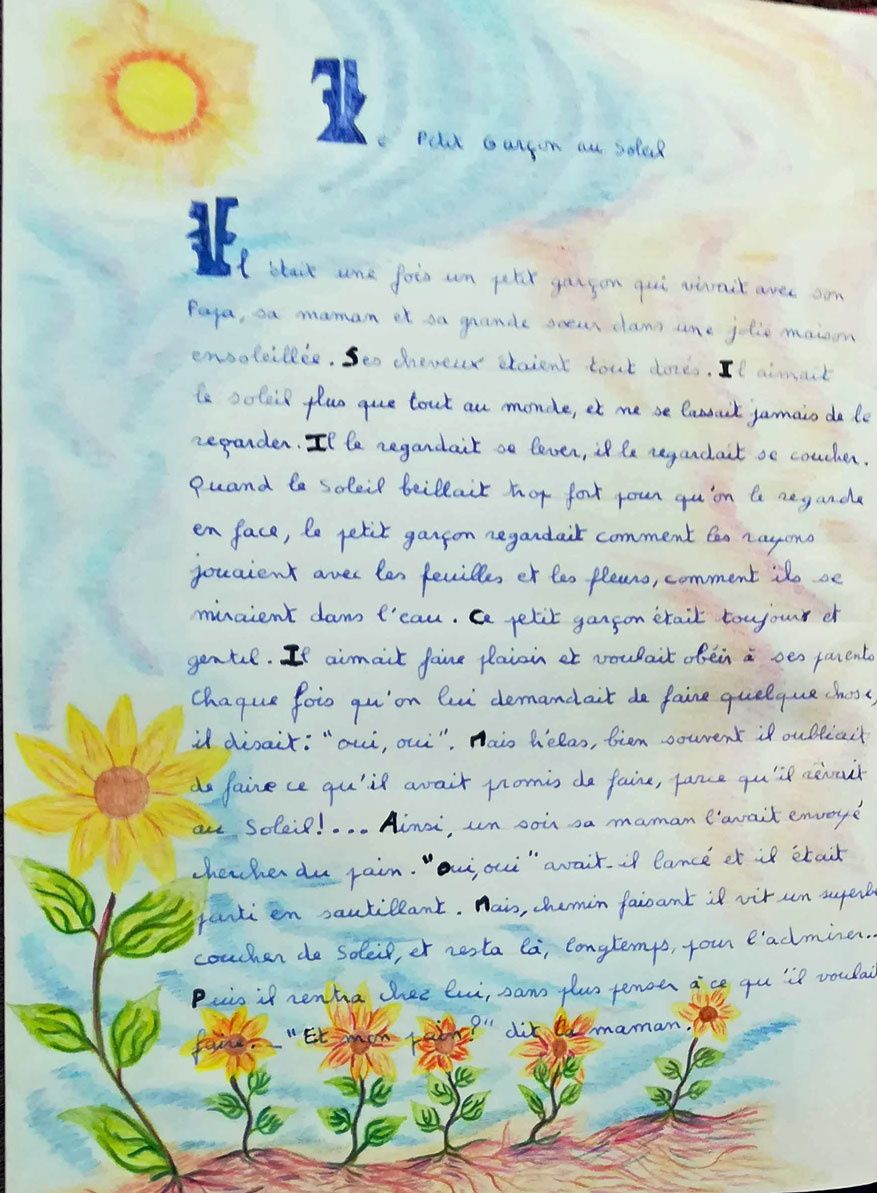 Le Petit Garçon au Soleil
Il était une fois un petit garçon qui vivait avec son
Papa, sa maman et sa grande soeur dans une jolie maison
ensoleillée. Ses cheveux étaient tout dorés. Il aimait
le soleil plus que tout au monde, et ne se lassait jamais de le
regarder. Il le regardait se lever, il le regardait se coucher.
Quand le Soleil brillait trop fort pour qu'on le regarde
en face, le petit garçon regardait comment les rayons
jouaient avec les feuilles et les fleurs, comment ils se
miraient dans l'eau. Ce petit garçon était toujours et
gentil. Il aimait faire plaisir et voulait obéir à ses parents
Chaque fois qu'on lui demandait de faire quelque chose,
il disait: "oui, oui". Mais hélas, bien souvent il oubliait
de faire ce qu'il avait promis de faire, parce qu'il rêvait
au Soleil!... Ainsi, un soir sa maman l'avait envoyé
chercher du pain. "Oui, oui" avait-il lancé et il était
parti en sautillant. Mais, chemin faisant il vit un superbe
coucher de Soleil, et resta là, longtemps, pour l'admirer...
Puis il rentra chez lui, sans plus penser à ce qu'il voulait
faire._ "Et mon pain?" dit la maman.